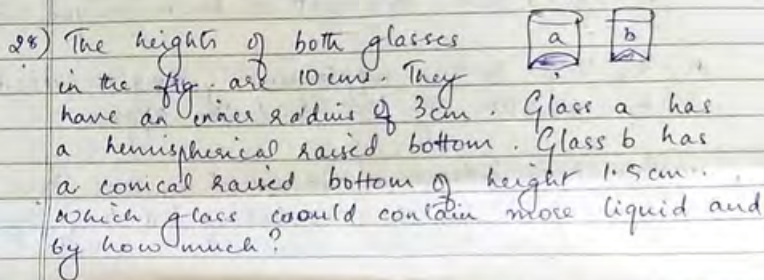 28) The heights of both glasses a b
in the fig. are 10 cms. They
have an inner radius of 3cm. Glass a has
a hemispherical raised bottom. Glass b has
a conical raised bottom of height 1.5 cm.
which glass could contain more liquid and
by how much?